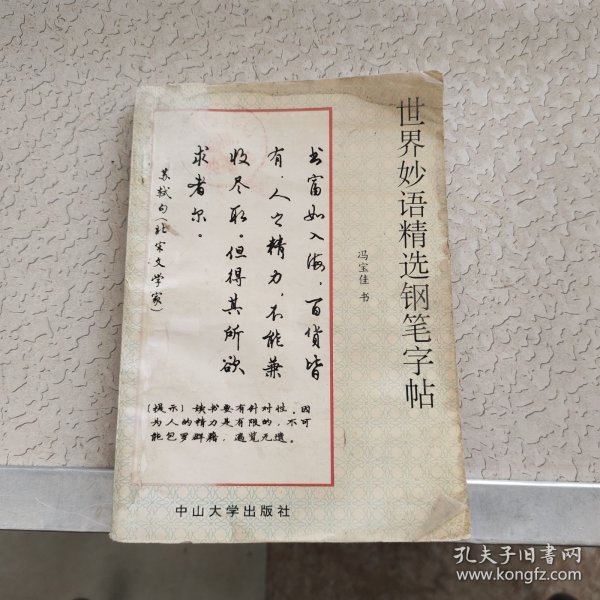 世界妙语精选钢笔字帖
冯宝佳 书
书富如入海，百货皆
有，人之精力，不能兼
收尽取。但得其所欲
求者尔。
苏轼句（北宋文学家）
〔提示〕读书要有针对性，因
为人的精力是有限的，不可
能包罗群籍，遍览无遗。
中山大学出版社
孔夫子旧书网
www.kongfz.com